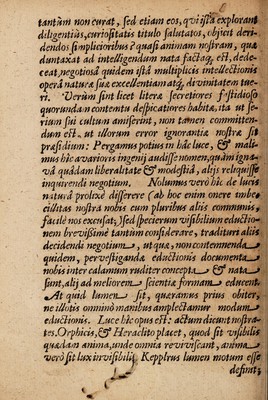 tantùm non curat, sed etiam eos, qui ista explorant
diligentiùs, curiositatis titulo salutatos, objicit deri-
dendos simplicioribus? quasi animam nostram, quæ
duntaxat ad intelligendum nata factaq; est, dede-
ceat, negotiosâ quidem istâ multiplicis intellectionis
operâ naturæ suæ excellentiam atq; divinitatem tue-
ri. Verùm sint licet literæ secretiores fastidioso
quorundam contentu despicatores habitæ, ita ut se-
rium sui cultum amiserint, non tamen committen-
dum est, ut illorum error ignorantiæ nostræ sit
præsidium: Pergamus potius in hâc luce, & mali-
mus hîc avarioris ingenij audisse nomen, quàm igna-
vâ quâdam liberalitate & modestiâ, alijs reliquisse
inquirendi negotium. Nolumus verò hîc de lucis
naturâ prolixè disserere (ab hoc enim onere imbe-
cillitas nostra nobis cum pluribus alijs communis,
facilè nos excusat,) sed specierum visibilium eductio-
nem brevissimè tantùm considerare, tradituri alijs
decidendi negotium, ut quæ, non contemnenda
quidem, pervestigandæ eductionis documenta
nobis inter calamum ruditer concepta & nata
sunt, alij ad meliorem scientiæ formam educent.
At quid lumen sit, quæramus prius obiter,
ne illotis omninò manibus amplectamur modum
eductionis. Luce hîc opus est: actum dicunt nostra-
tes. Orphicis, & Heraclito placet, quod sit visibilis
quædam anima, unde omnia reviviscant, anima
verò sit lux invisibilis. Kepplerus lumen motum esse
definit;